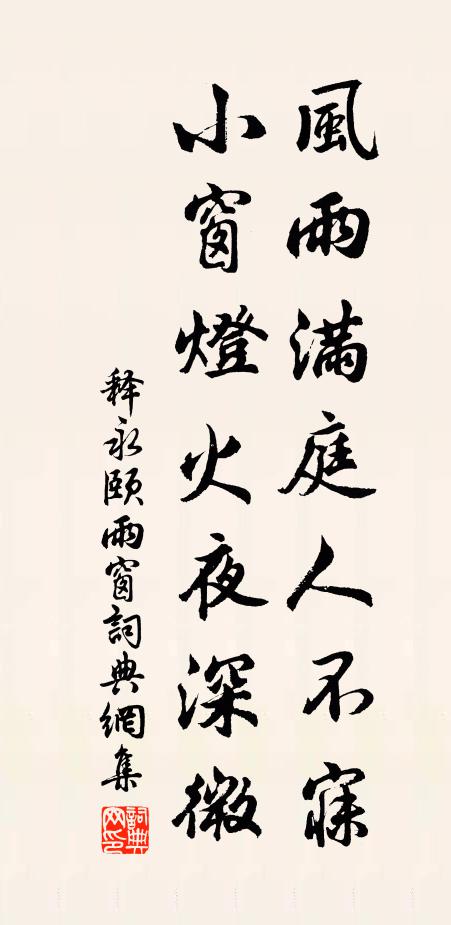 風雨滿庭人不寐
小窗燈火夜深微
释永颐雨窗詞典網集
詞典網印